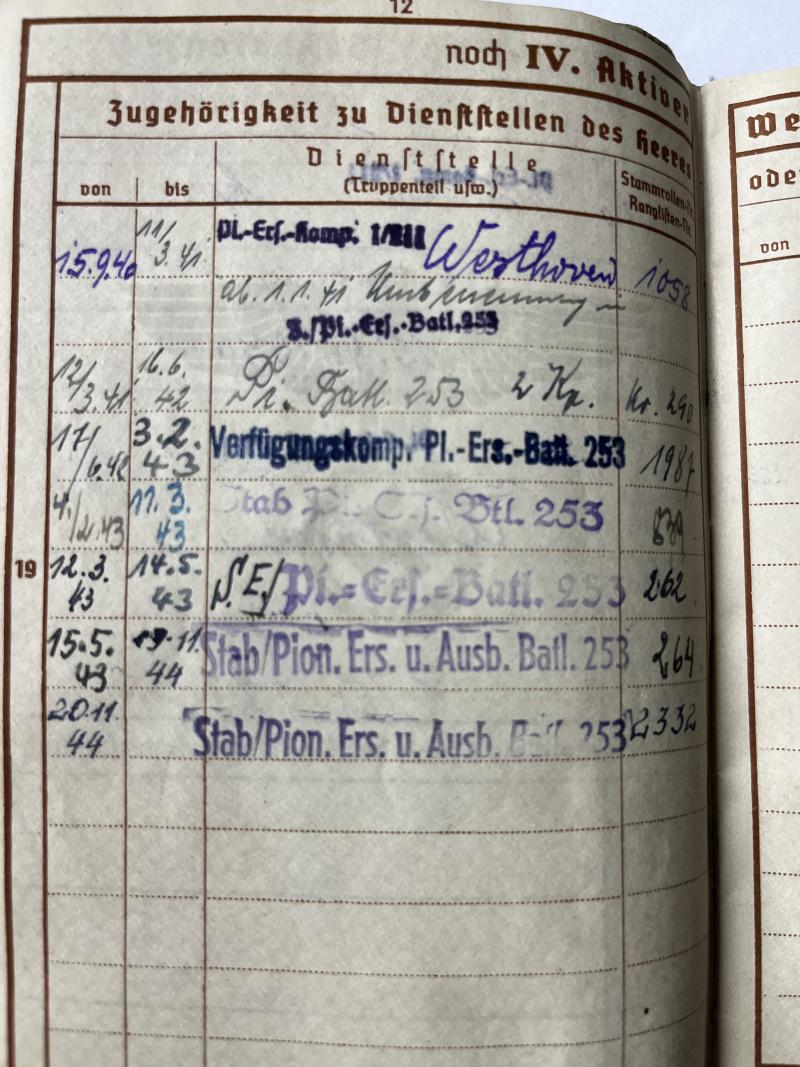 12
noch IV. Aktiver
Zugehörigkeit zu Dienststellen des Heeres
von bis Dienststelle (Truppenteil usw.) Stammrollen-Nr. Ranglisten-Nr.
15.9.40 11/3.41 Pi.-Ers.-Komp. Westhoven 1058
ab. 1.1.41 Umbenennung in
3./Pi.-Ers.-Batl. 253
12/3.41 16.6.42 Pi. Batl. 253 2 Kp. Nr. 290
17/6.42 3.2.43 Verfügungskomp. Pi.-Ers.-Batl. 253 1987
4./2.43 11.3.43 Stab Pi. Ers. Btl. 253 839
19 12.3.43 14.5.43 Pi.-Ers.-Batl. 253 262
15.5.43 19.11.44 Stab/Pion. Ers. u. Ausb. Batl. 253 264
20.11.44 Stab/Pion. Ers. u. Ausb. Batl. 253 2332
We
ode
von